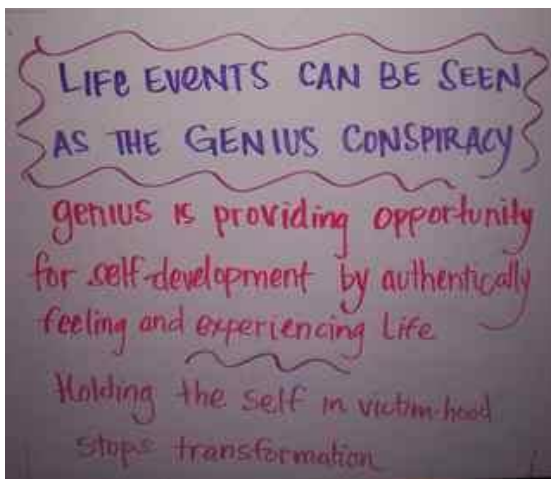 LIFe EVeNTS CAN BE SEEN
AS THE GENIUS CONSPIRACY
genius is providing opportunity
for self-development by authentically
feeling and experiencing Life
Holding the self in victim-hood
stops transformation